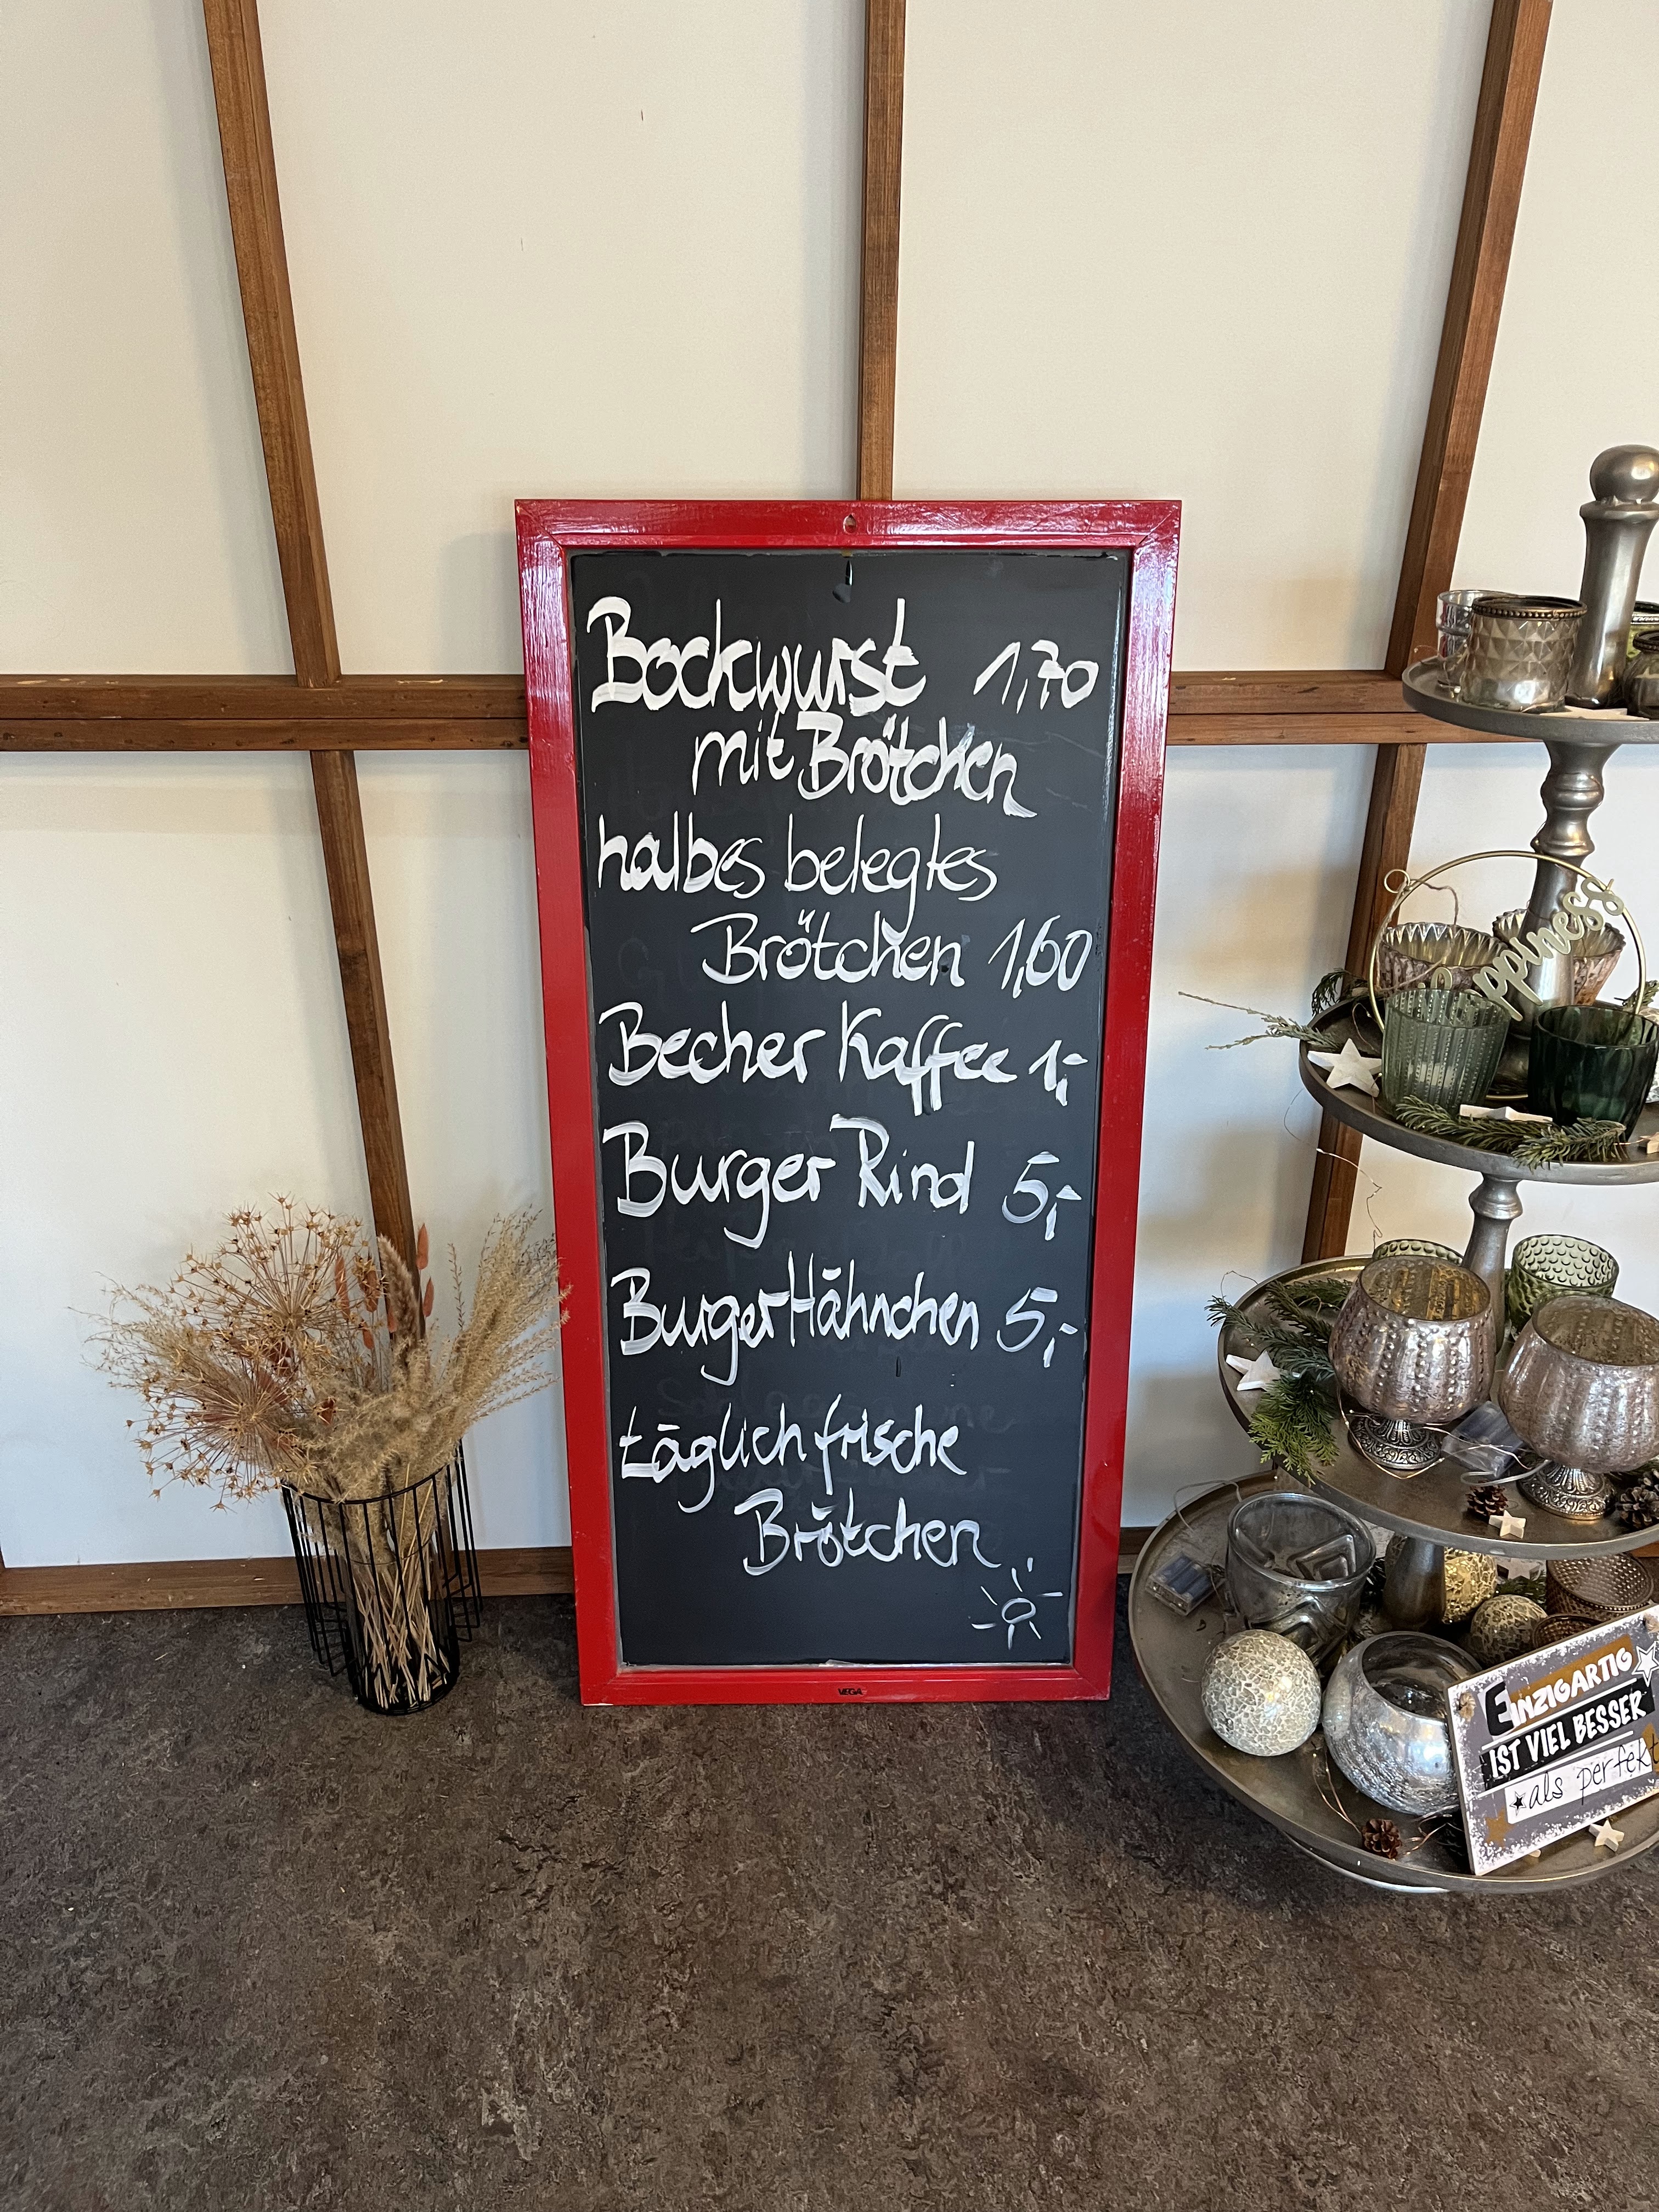 Bockwurst 1,70
mit Brötchen
halbes belegtes
Brötchen 1,60
Becher Kaffee 1,-
Burger Rind 5,-
Burger Hähnchen 5,-
täglich frische
Brötchen
VEGA
EINZIGARTIG
IST VIEL BESSER
als perfekt